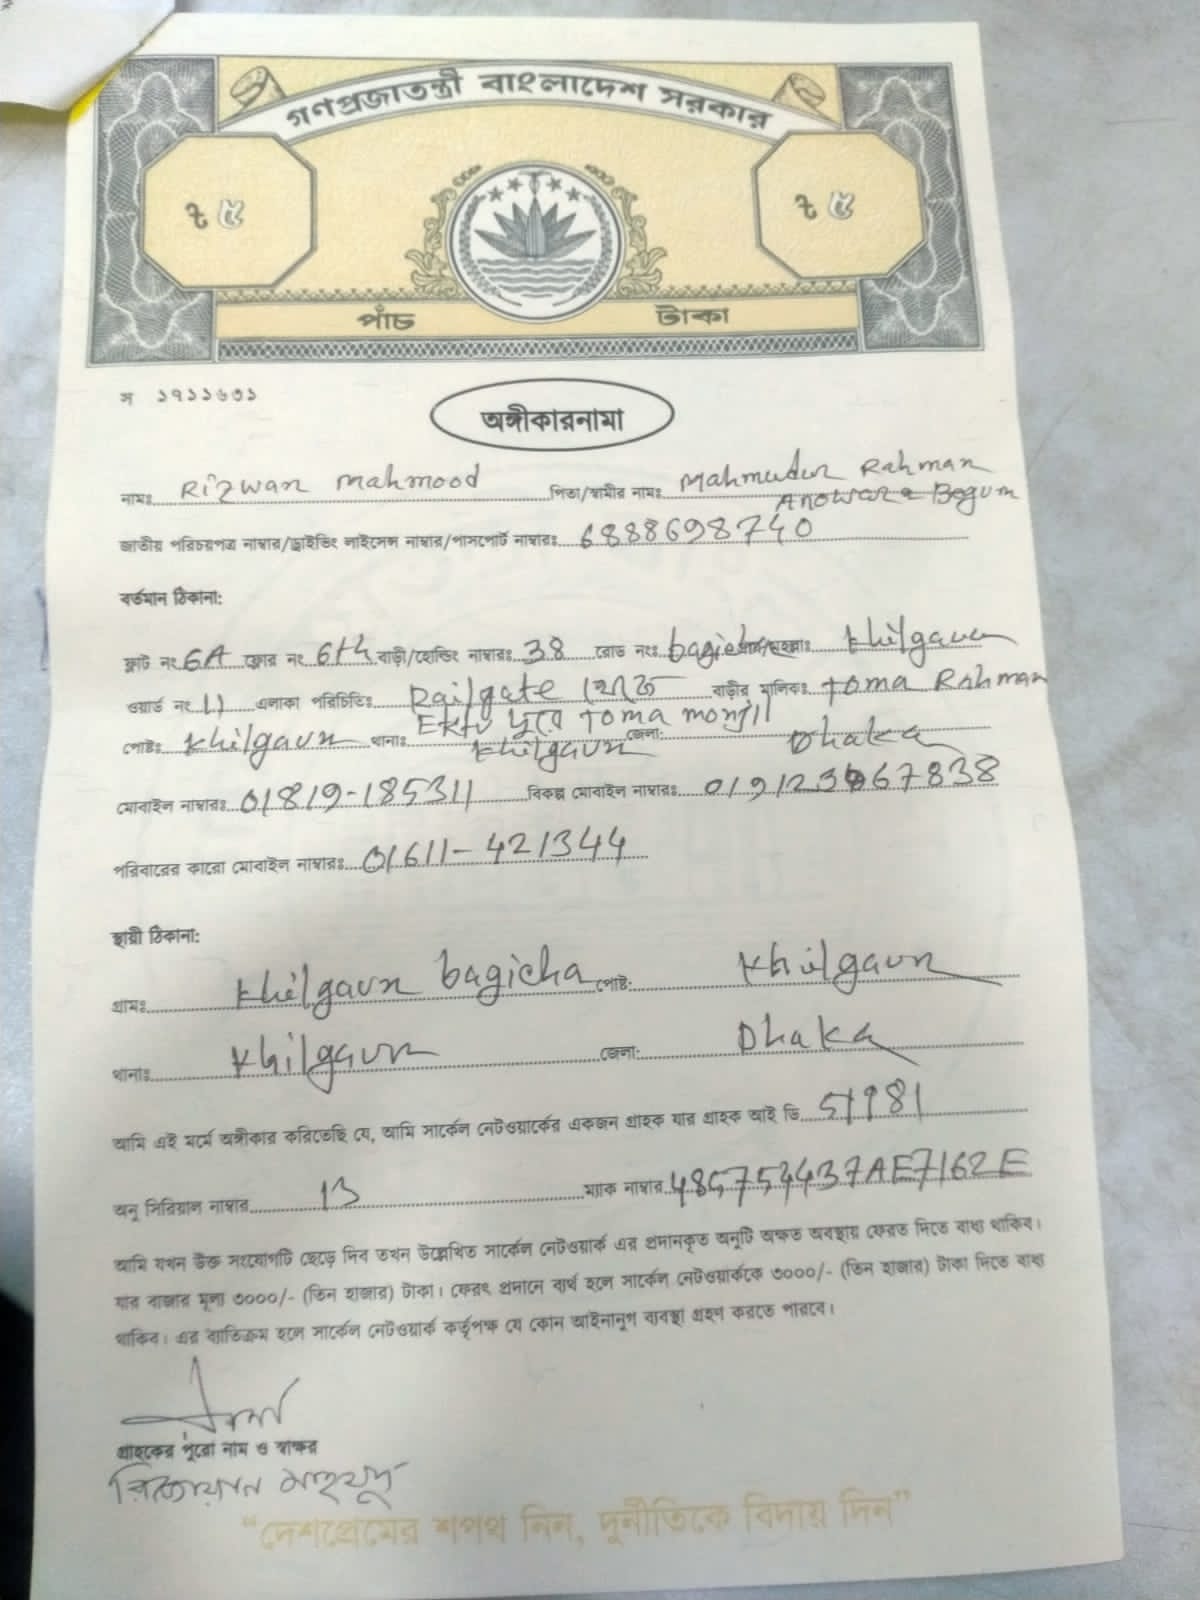 গণপ্রজাতন্ত্রী বাংলাদেশ সরকার
৳ ৫
৳ ৫
পাঁচ টাকা
স ১৭১১৬৩১
অঙ্গীকারনামা
নামঃ Rizwan Mahmood পিতা/স্বামীর নাম: Mahmudur Rahman
Anowara Begum
জাতীয় পরিচয়পত্র নাম্বার/ড্রাইভিং লাইসেন্স নাম্বার/পাসপোর্ট নাম্বারঃ 6888698740
বর্তমান ঠিকানা:
ফ্লাট নং 6A ফ্লোর নং 6th বাড়ী/হোল্ডিং নাম্বারঃ 38 রোড নংঃ bagicha মহল্লাঃ Khilgaun
ওয়ার্ড নং 11 এলাকা পরিচিতিঃ Railgate থেকে বাড়ীর মালিকঃ Toma Rahman
Ektu দূরে Toma monjil
পোষ্টঃ Khilgaun থানাঃ Khilgaun জেলা: Dhaka
মোবাইল নাম্বারঃ 01819-185311 বিকল্প মোবাইল নাম্বারঃ
পরিবারের কারো মোবাইল নাম্বারঃ 01611-421344
স্থায়ী ঠিকানা:
গ্রামঃ Khilgaun bagicha পোষ্ট: Khilgaun
থানাঃ Khilgaun জেলা: Dhaka
আমি এই মর্মে অঙ্গীকার করিতেছি যে, আমি সার্কেল নেটওয়ার্কের একজন গ্রাহক যার গ্রাহক আই ডি 51981
অনু সিরিয়াল নাম্বার 13 ম্যাক নাম্বার
আমি যখন উক্ত সংযোগটি ছেড়ে দিব তখন উল্লেখিত সার্কেল নেটওয়ার্ক এর প্রদানকৃত অনুটি অক্ষত অবস্থায় ফেরত দিতে বাধ্য থাকিব।
যার বাজার মূল্য ৩০০০/- (তিন হাজার) টাকা। ফেরৎ প্রদানে ব্যর্থ হলে সার্কেল নেটওয়ার্ককে ৩০০০/- (তিন হাজার) টাকা দিতে বাধ্য
থাকিব। এর ব্যতিক্রম হলে সার্কেল নেটওয়ার্ক কর্তৃপক্ষ যে কোন আইনানুগ ব্যবস্থা গ্রহণ করতে পারবে।
গ্রাহকের পুরো নাম ও স্বাক্ষর
রিজওয়ান মাহমুদ
“দেশপ্রেমের শপথ নিন, দুর্নীতিকে বিদায় দিন”